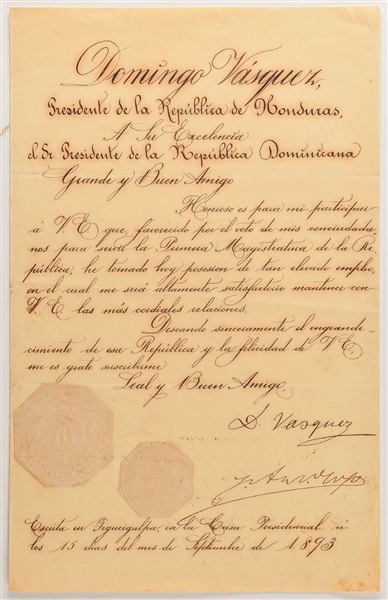 Domingo Vásquez,
Presidente de la República de Honduras,
A Su Excelencia
el Sr Presidente de la República Dominicana
Grande y Buen Amigo
Honroso es para mi participar
á V. E. que, favorecido por el voto de mis conciudada-
nos para servir la Primera Magistratura de la Re-
pública, he tomado hoy posesion de tan elevado empleo,
en el cual me será altamente satisfactorio mantener con
V. E. las más cordiales relaciones.
Deseando sinceramente el engrande-
cimiento de esa República y la felicidad de V. E.
me es grato suscribirme
Leal y Buen Amigo,
D. Vasquez
Escrita en Tegucigalpa, en la Casa Presidencial á
los 15 dias del mes de Septiembre de 1893